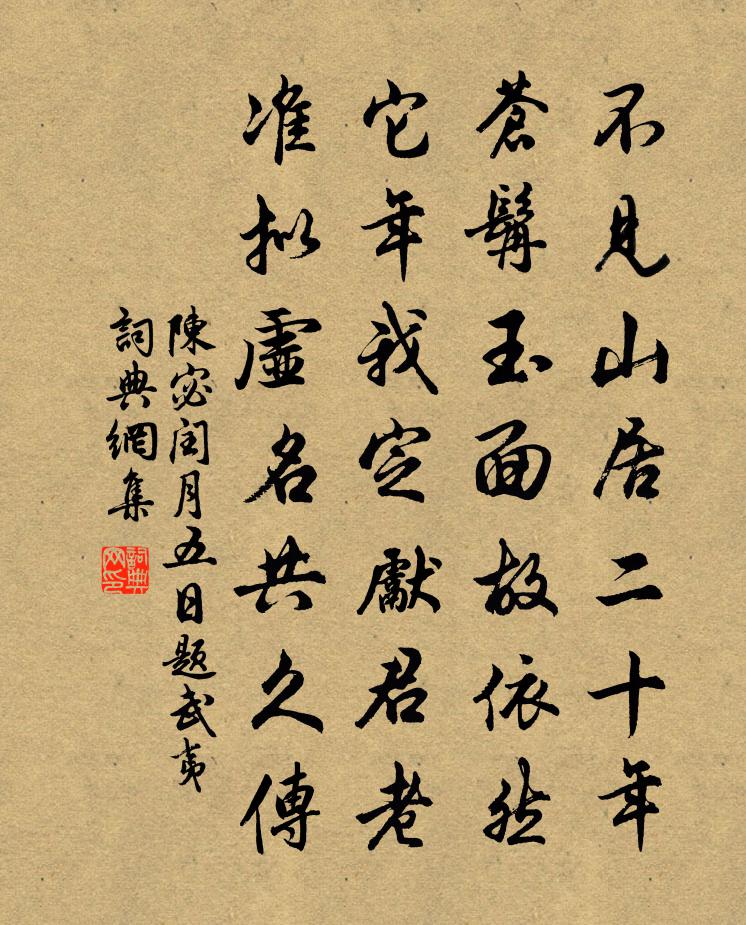 不見山居二十年
蒼髯玉面故依然
它年我定獻君老
准拟虛名共久傳
陳宓閏月五日題武夷
詞典網集
詞典网印